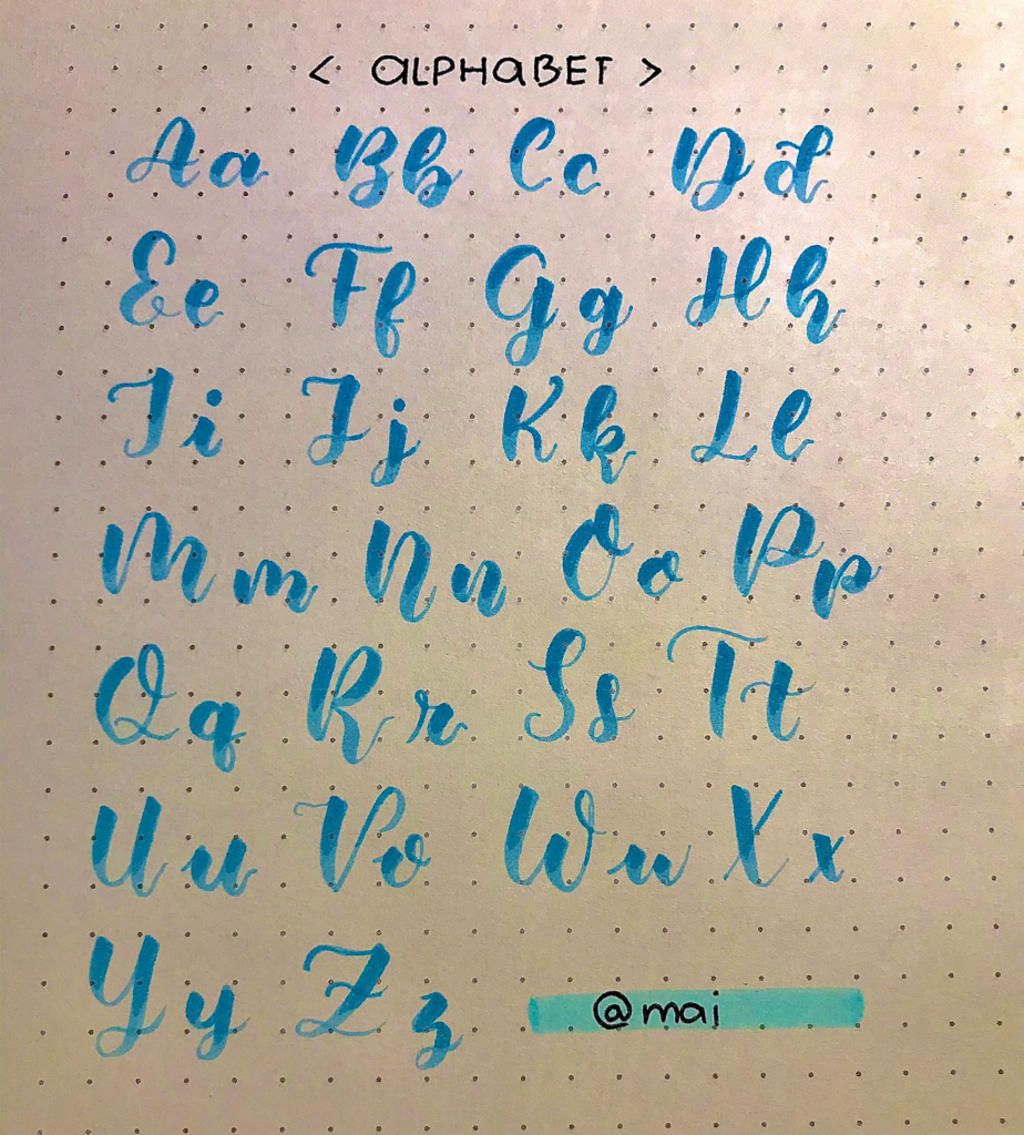 < ALPHABET >
Aa Bb Cc Dd
Ee Ff Gg Hh
Ii Jj Kk Ll
Mm Nn Oo Pp
Qq Rr Ss Tt
Uu Vv Ww Xx
Yy Zz @mai